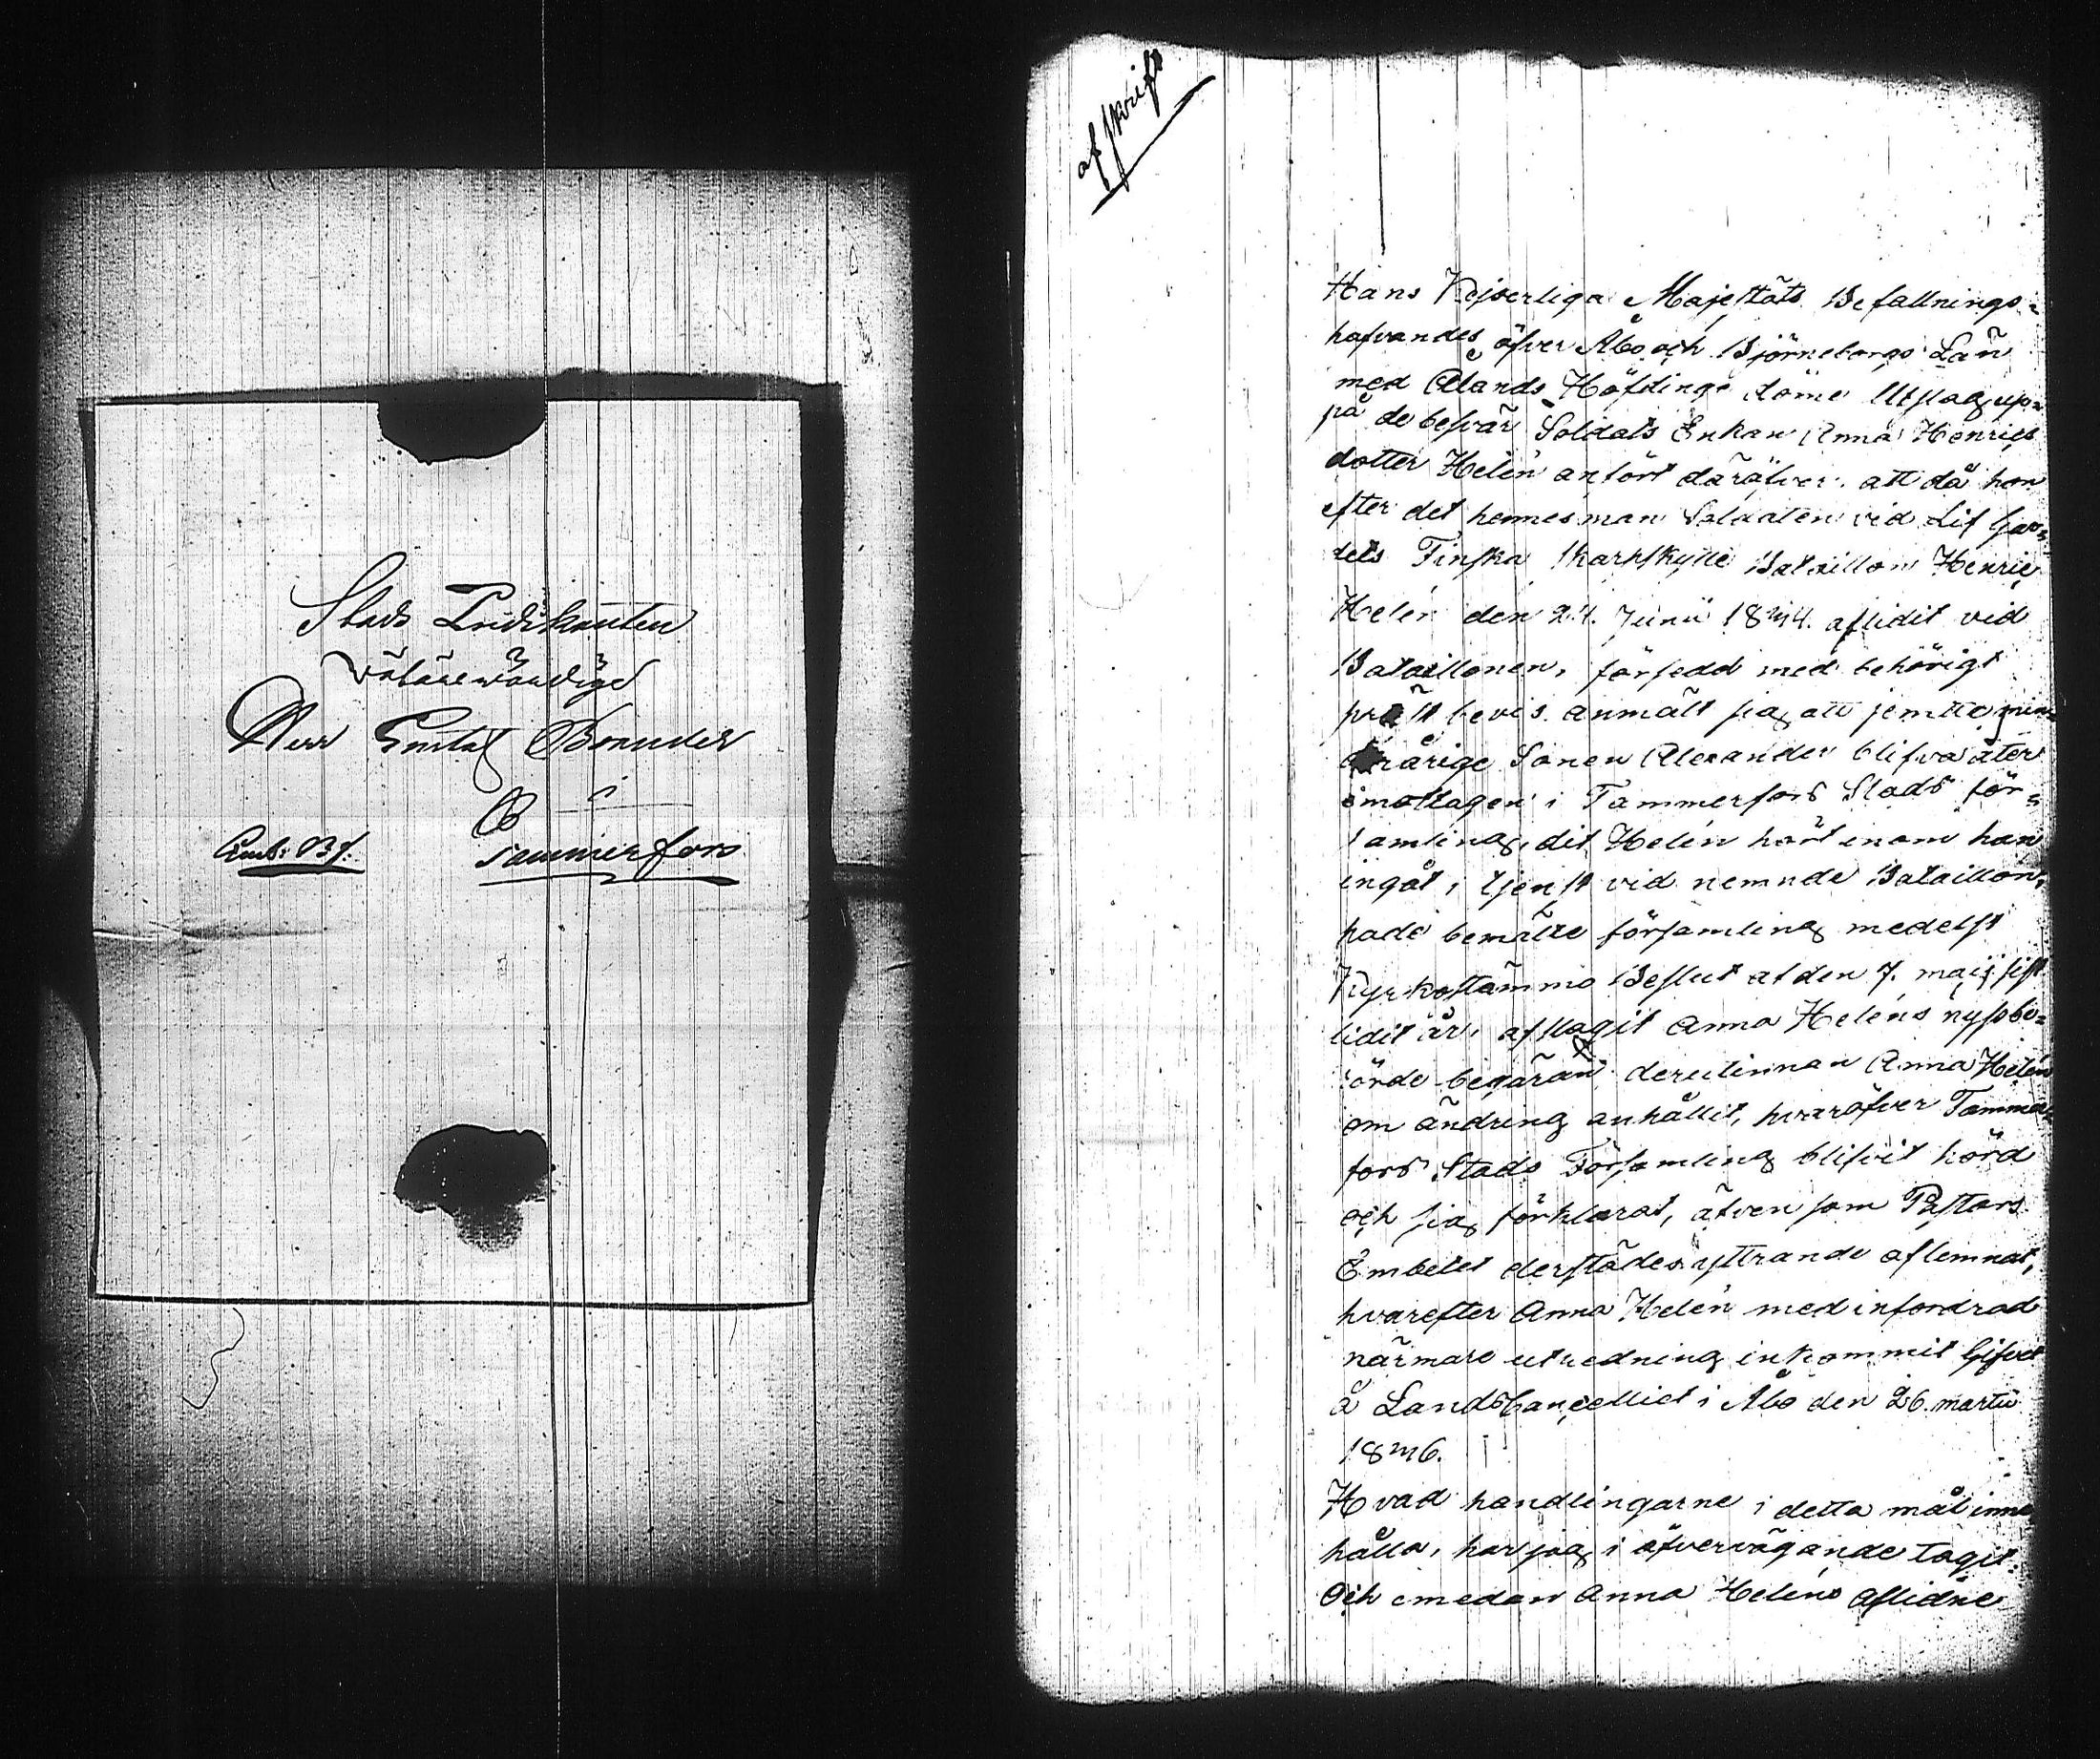 Stads Predikanten
välärewördige
Herr Gustaf Bonuder
Embs Bf.
Tammerfors
afskrift
Hans Kejserliga Majestäts Befallnings-
hafvandes öfver Åbo och Björneborgs Län
med Ålands Höfdinge döme Utslag up-
på de besvär Soldats Enkan Anna Henrics
dotter Helén anfört däröfver, att då hon
efter det hennes man Soldaten vid Lif Gar-
dets Finska Skarpskytte Bataillon Henric
Helén den 24. Junii 1844. aflidit vid
Bataillonen, försedd med behörigt
prest bevis anmält sig att jemte min-
derårige Sonen Alexander blifva åter
emottagen i Tammerfors Stads för-
samling, dit Helén hört innom han
ingåt i tjenst vid nemnde Bataillon,
hade bemälte församling medelst
Kyrkostämmo Beslut af den 7. maij sist-
lidit år, afslagit Anna Heléns nyssbe-
rörde begäran derutinnan Anna Helén
om ändring anhållit, hvaröfver Tammer-
fors Stads Församling blifvit hörd
och sig förklarat, äfven som Pastors
Embetet derstädes yttrande aflemnat,
hvarefter Anna Helén med infordrad
närmare utredning inkommit Gifvet
å Landscancelliet i Åbo den 26. martii
1846.
Hvad handlingarne i detta mål inne
hålla, har jag i öfvervägande tagit.
Och emedan Anna Heléns aflidne